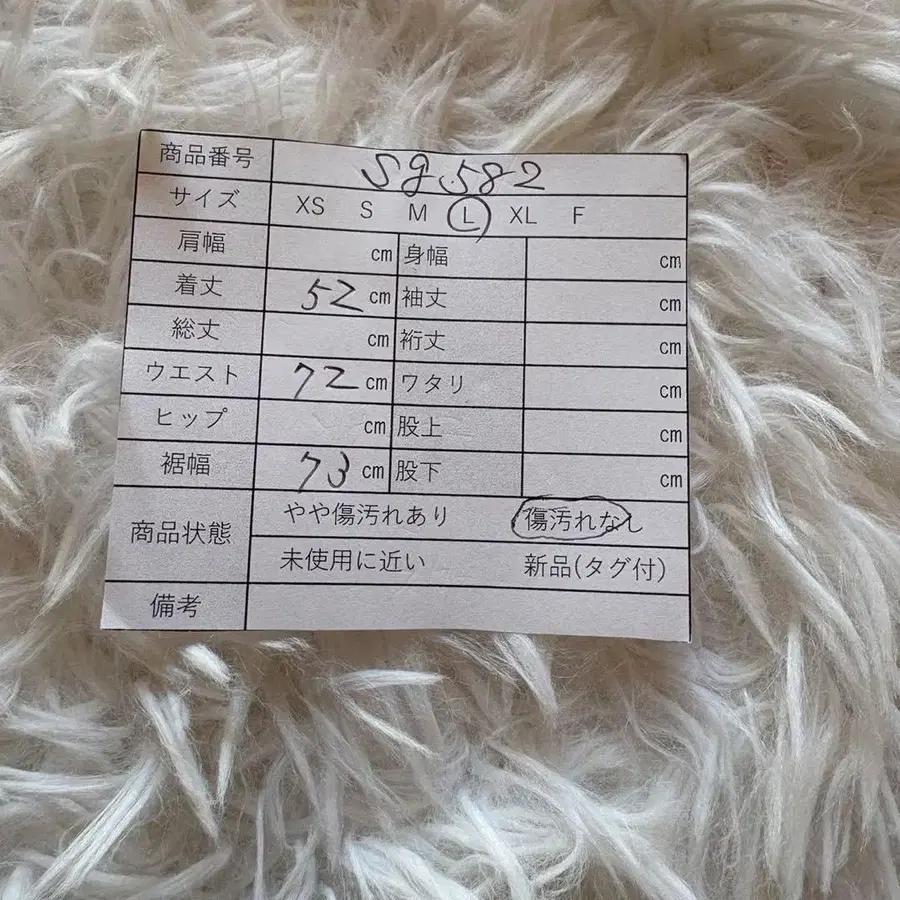 商品番号 sg582
サイズ XS S M L XL F
肩幅 cm 身幅 cm
着丈 52 cm 袖丈 cm
総丈 cm 裄丈 cm
ウエスト 72 cm ワタリ cm
ヒップ cm 股上 cm
裾幅 73 cm 股下 cm
商品状態 やや傷汚れあり 傷汚れなし
未使用に近い 新品(タグ付)
備考